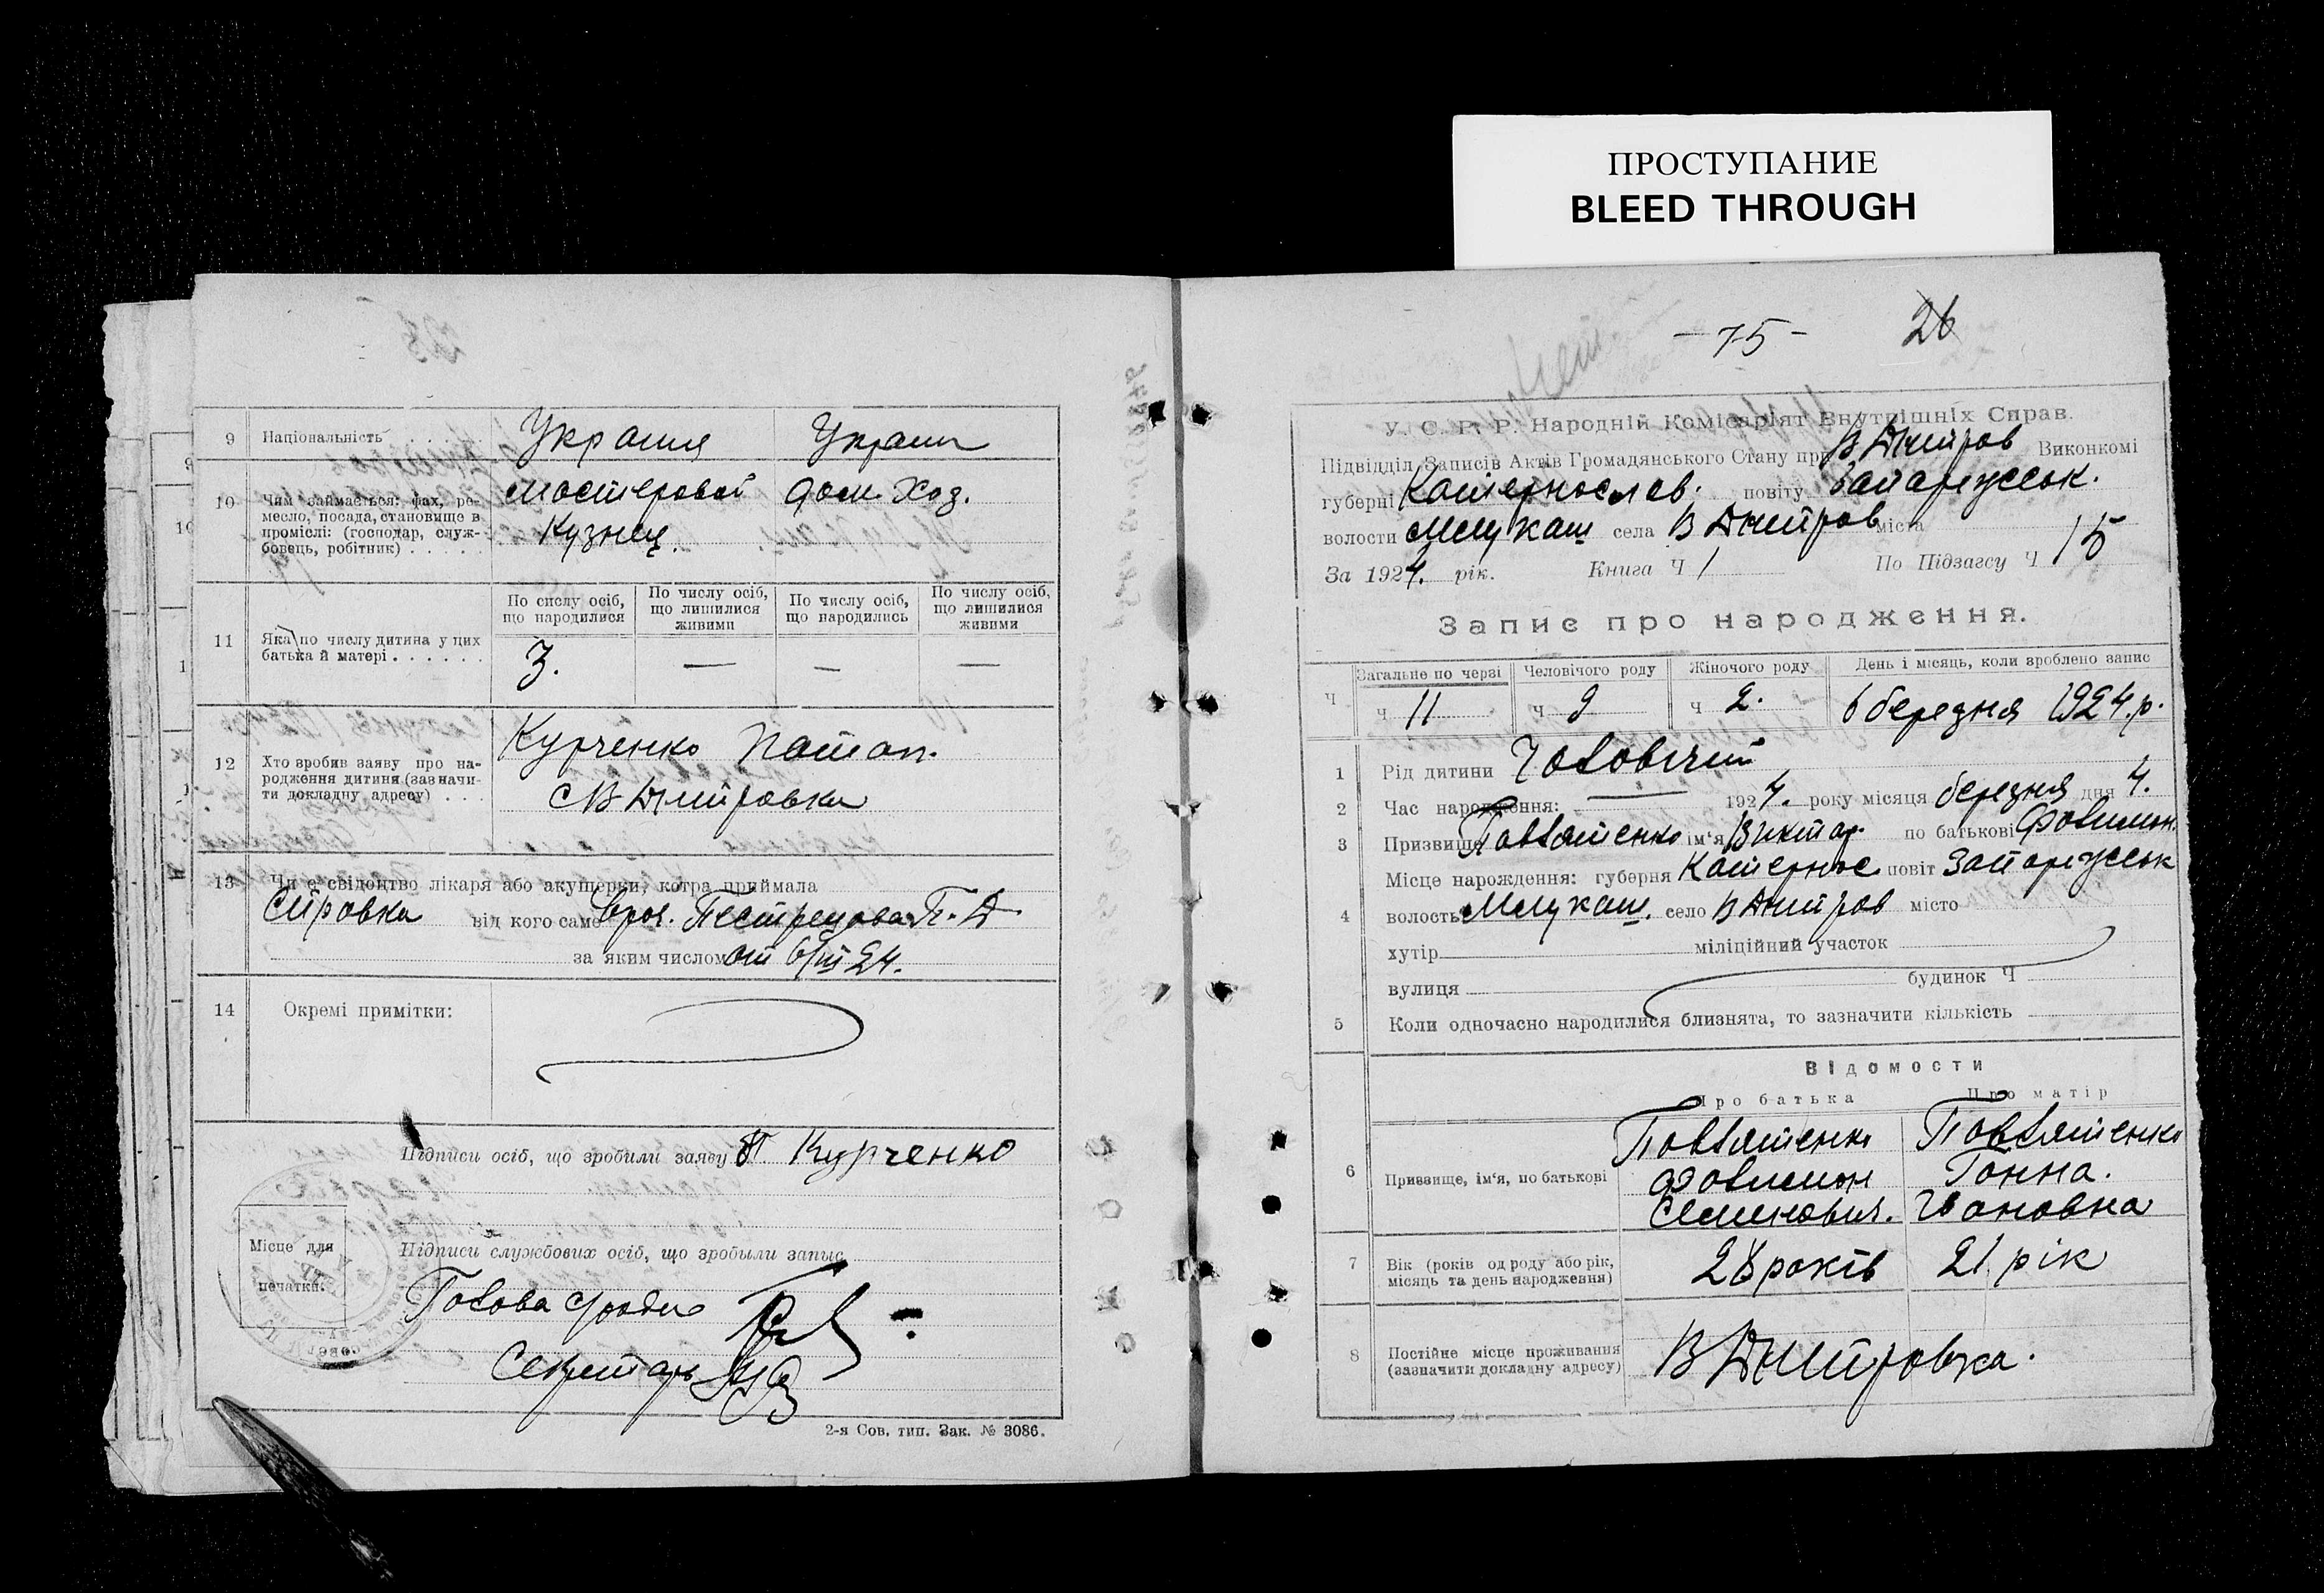 ПРОСТУПАНИЕ
BLEED THROUGH
9 Національність . . . . . Украиня Украин
10 Чим займається: фах, ре-
месло, посада, становище в
проміслі: (господар, служ-
бовець, робітник) . . . . .
мастеровой
Кузнец.
дом. Хоз.
11 Яка по числу дитина у цих
батька й матері . . . . . .
По числу осіб,
що народилися
По числу осіб,
що лишилися
живими
По числу осіб,
що народились
По числу осіб,
що лишилися
живими
3. — — —
12 Хто зробив заяву про на-
родження дитини (зазначи-
ти докладну адресу) . . .
Курченко Потап.
С В Дмитровка
13 Чи є свідоцтво лікаря або акушерки, котра приймала
Справка від кого саме Врач. П. Д.
за яким числом от 6/III 24.
14 Окремі примітки:
Підписи осіб, що зробили заяву П Курченко
Місце для
печатки.
Підписи службових осіб, що зробыли запыс
Голова
Секретарь
2-я Сов. тип. Зак. № 3086.
- 75 -
26
У. С. Р. Р. Народній Комісаріят Внутрішніх Справ.
Підвідділ Записів Актів Громадянського Стану при В Дмитров Виконкомі
губерні Катернослав. повіту Запаріжськ.
волости села В Дмитров міста
За 1924. рік. Книга Ч 1 По Підзагсу Ч 15
Запис про народження.
Ч
Загальне по черзі
Человічого роду
Жіночого роду
День і місяць, коли зроблено запис
ч 11 ч 9 ч 2. 6 березня 1924.р.
1 Рід дитини Чоловічий
2 Час народження: 1924. року місяця березня дня 4.
3 Призвище ім‘я Виктор по батькові Филимон.
4 Місце нарождення: губерня Катернос повіт Запаріжськ
волость село В Дмитров місто
хутір міліційний участок
вулиця будинок Ч
5 Коли одночасно народилися близнята, то зазначити кількість
Відомости
Про батька Про матір
6 Призвище, ім‘я, по батькові
Филимон
Семенович.
Ганна.
Івановна
7 Вік (років од роду або рік,
місяць та день народження)
28 років 21 рік
8 Постійне місце проживання
(зазначити докладну адресу)
В Дмитровка.